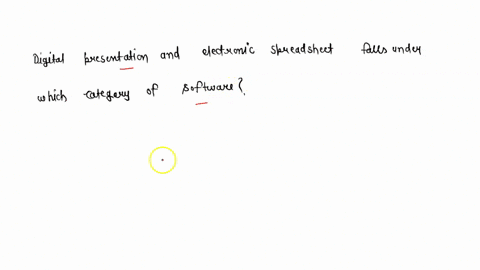 Digital presentation and electronic spreadsheet falls under
which category of software?